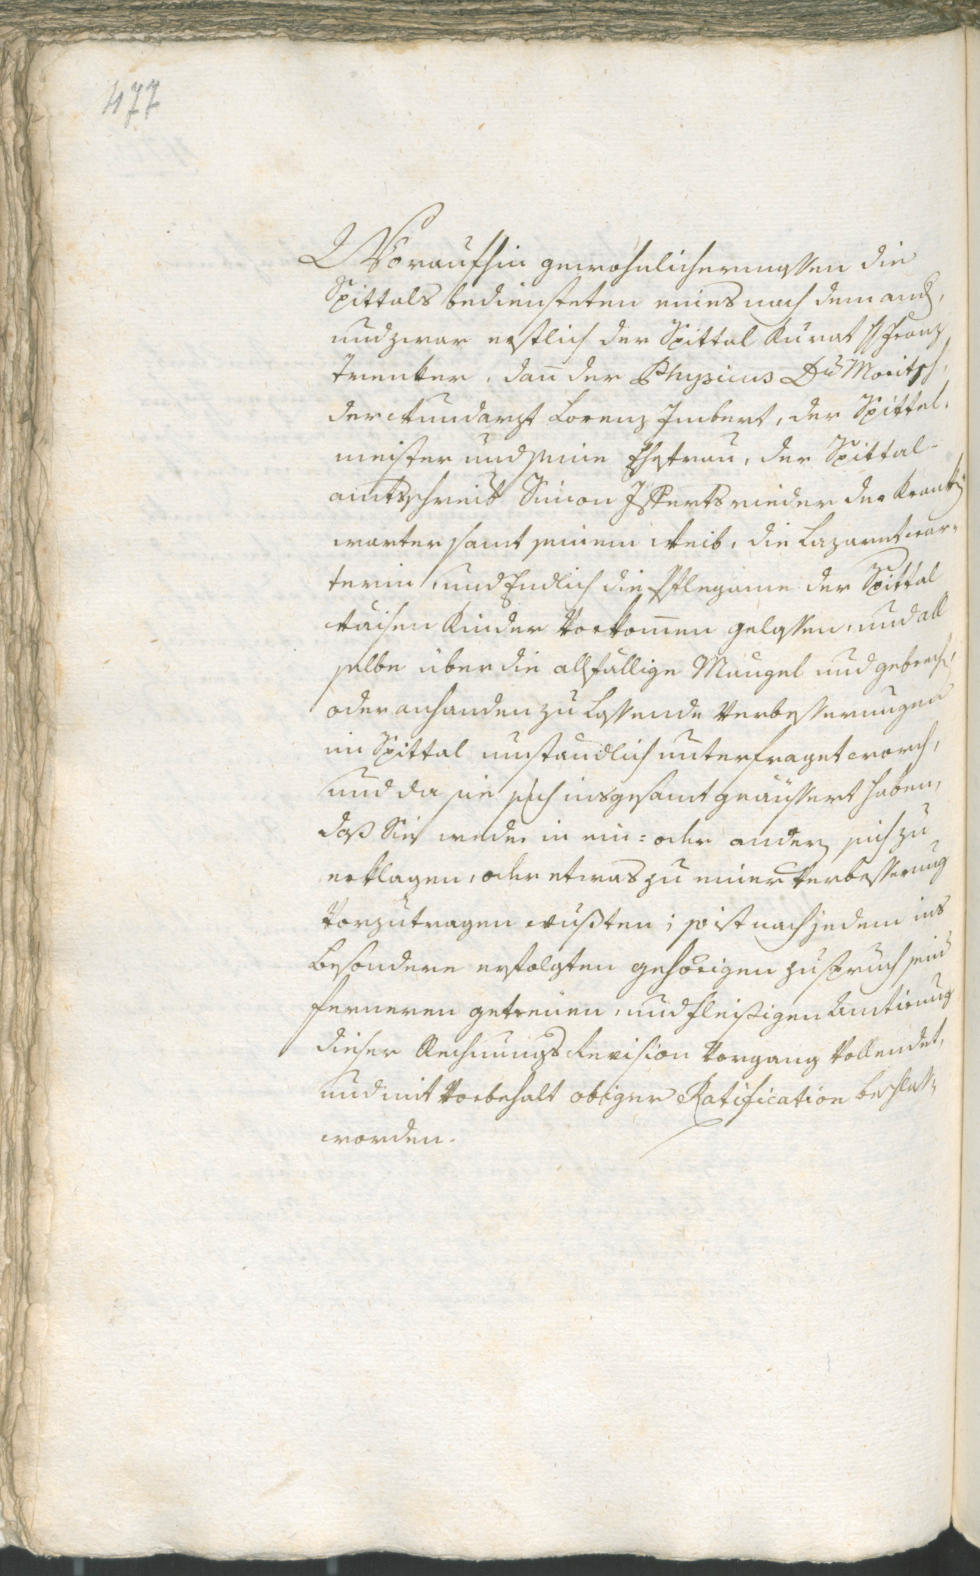 477
Woraufhin gewöhnlichermassen die
Spittals bediensteten eines nach dem and,
und zwar erstlich der Spittal Kurat H Franz
Trenker, dan der Physicus Dr Moritsch,
der Wundarzt Lorenz Imbert, der Spittel-
meister und seine Ehefrau, der Spittal-
amtsschreib Simon der Krank
warter samt seinem Weib, die Lazaretwar-
terin, und Endlich die der Spittal
Waisen Kinder Vorkomen gelassen, und all
selbe über die allfällige Mängel und gebrech,
oder anhanden zu Lassende Verbesserungen
im Spittal umständlich unterfraget word,
und da sie sich insgesamt geäussert haben,
daß Sie weder in ein= oder andern sich zu
erklagen, oder etwas zu einer Verbesserung
Vorzutragen wußten; so ist nach jedem ins
besondere erfolgten gehörigen zuspruch sein
ferneren getreuen, und fleißigen Amtirung
dieser Rechnungs Revision Vorgang Vollendet,
und mit Vorbehalt obiger Ratification
worden.